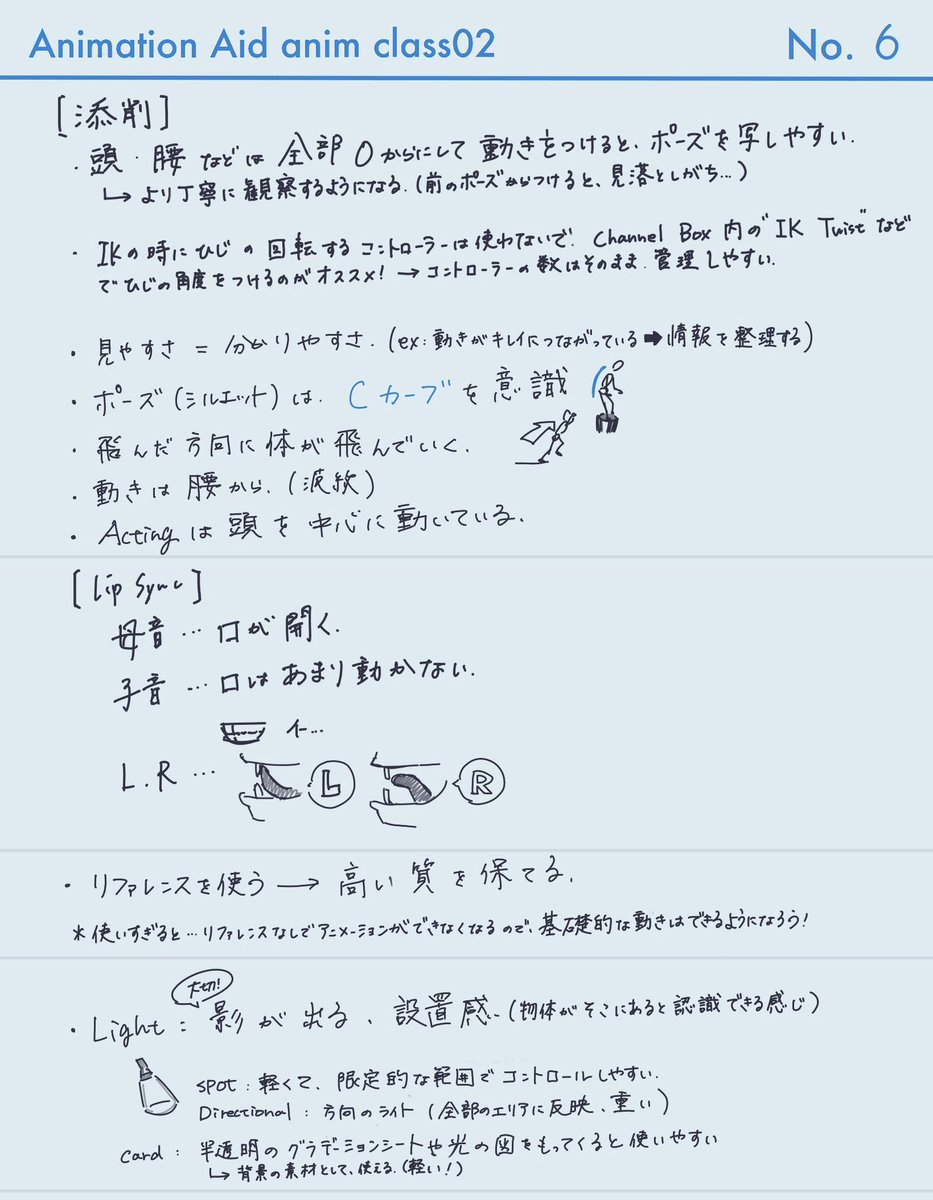 Animation Aid anim class02
No. 6
[添削]
・頭・腰などは全部0からにして動きをつけると、ポーズを写しやすい.
↳より丁寧に観察するようになる.(前のポーズからつけると、見落としがち…)
・IKの時にひじの回転するコントローラーは使わないで. Channel Box 内の"IK Twist"など
でひじの角度をつけるのがオススメ! → コントローラーの数はそのまま.管理しやすい.
・見やすさ = 分かりやすさ.(ex:動きがキレイにつながっている➡情報を整理する)
・ポーズ(シルエット)は. Cカーブを意識
・飛んだ方向に体が飛んでいく.
・動きは腰から.(波紋)
・Actingは頭を中心に動いている.
[Lip Sync]
母音…口が開く.
子音…口はあまり動かない.
イー…
L.R …
L
R
・リファレンスを使う → 高い質を保てる.
*使いすぎると…リファレンスなしでアニメーションができなくなるので、基礎的な動きはできるようになろう!
大切!
・Light:影が出る、設置感.(物体がそこにあると認識できる感じ)
spot:軽くて、限定的な範囲でコントロールしやすい.
Directional:方向のライト(全部のエリアに反映、重い)
card:半透明のグラデーションシートや光の図をもってくると使いやすい
↳背景の素材として、使える.(軽い!)